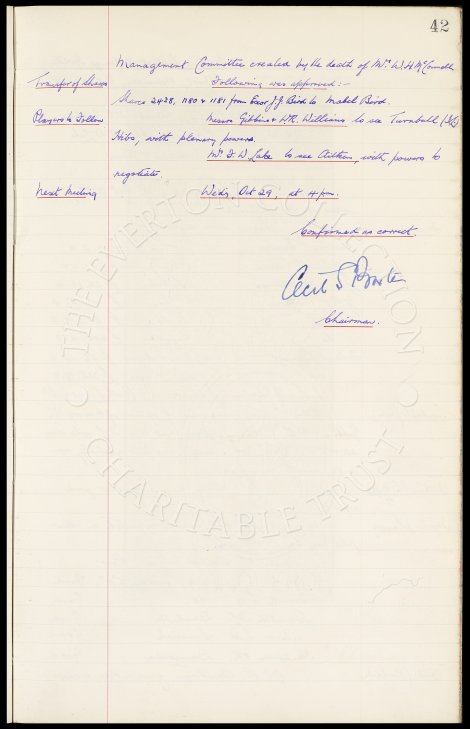 42
Management Committee created by the death of Mr. W.H. McConnell
Transfer of Shares
Following was approved:-
Shares 2438, 1180 & 1181 from Exor J.J. Bird to Mabel Bird.
Players to Follow
Messrs Gibbins & W.R. Williams to see Turnbull
Hibs, with plenary powers.
Mr. F. W. Lake to see Aitken, with powers to
negotiate.
Next Meeting
Wedy, Oct 29, at 4 pm.
Confirmed as correct.
Cecil S Baxter
Chairman.
THE EVERTON COLLECTION
CHARITABLE TRUST